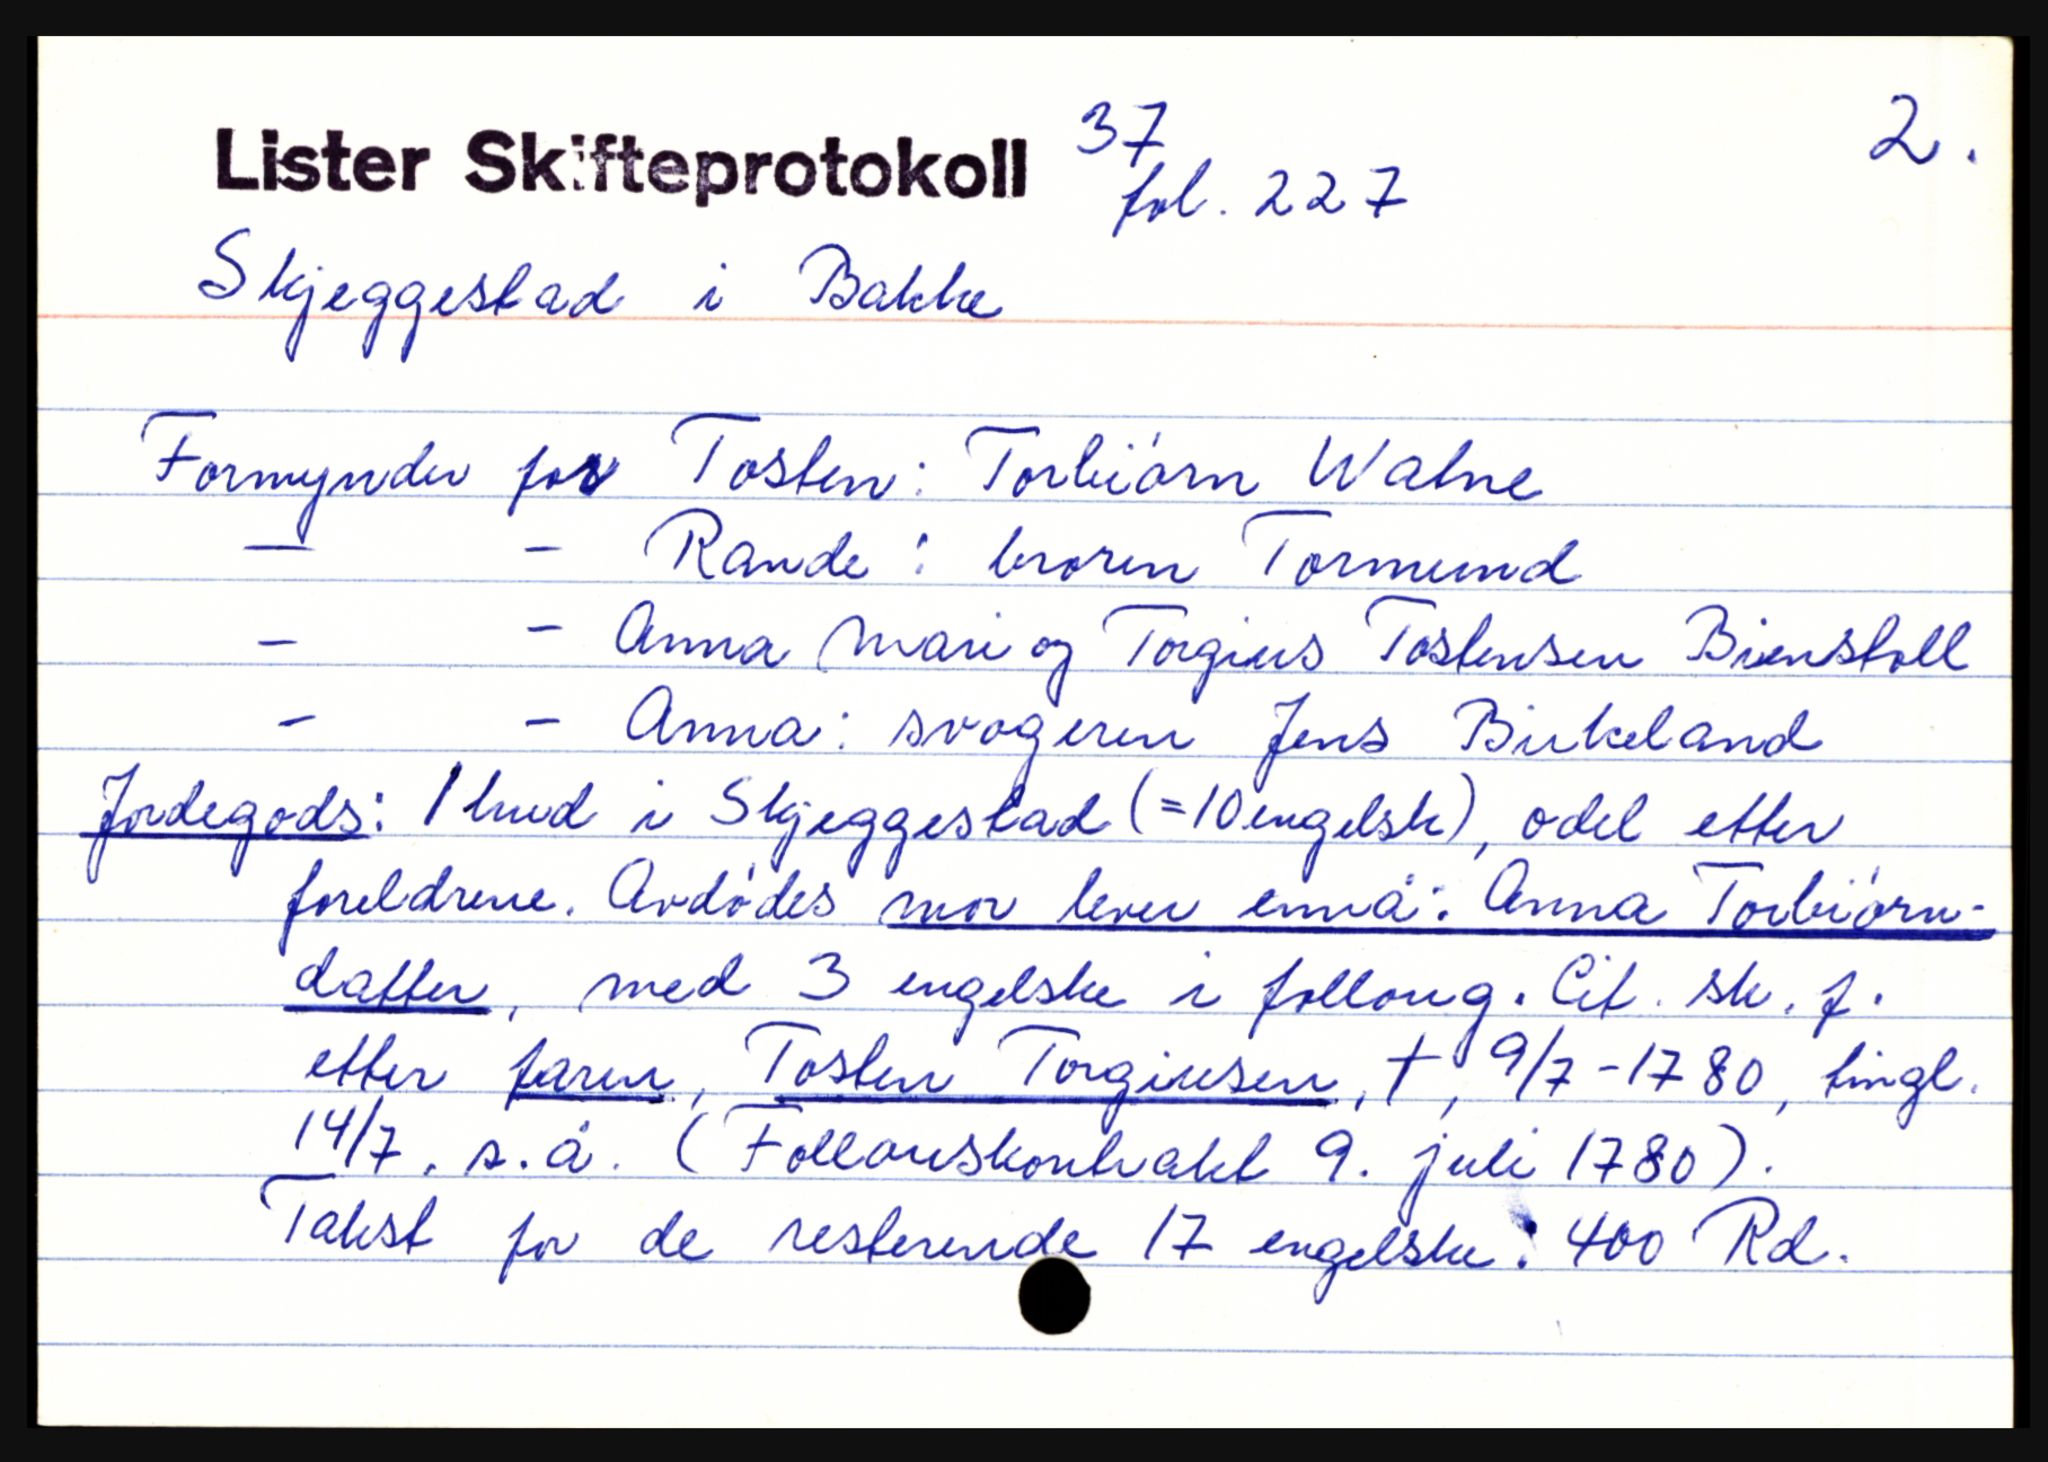 Lister Skifteprotokoll 37 2.
fol. 227
Skjeggestad i Bakke
Formynder for Tosten: Torbiórn Watne
— - Rande: broren Tormund
- - Anna Mari og Torgius Tostensen Bienstoll
- - Anna: svogeren Jens Birkeland
Jordegods: 1 hud i Skjeggestad (=10 engelsk), odel etter
foreldrene. Avdódes mor lever ennå: Anna Torbiórn-
datter, med 3 engelske i folloug. Cit. sk. f.
etter faren, Tosten Torgiusen, †, 9/7-1780, tingl.
14/7. s.å. (Follouskontrakt 9. juli 1780).
Takst for de resterende 17 engelske: 400 Rd.